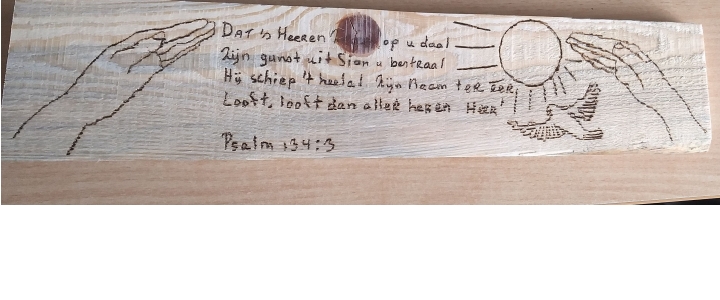 DAT 's HEEREN op u daal
Zijn gunst uit Sion u bestraal
Hij schiep 't heelal Zijn Naam ter eer,
Looft, looft dan aller heren Heer!
Psalm 134:3